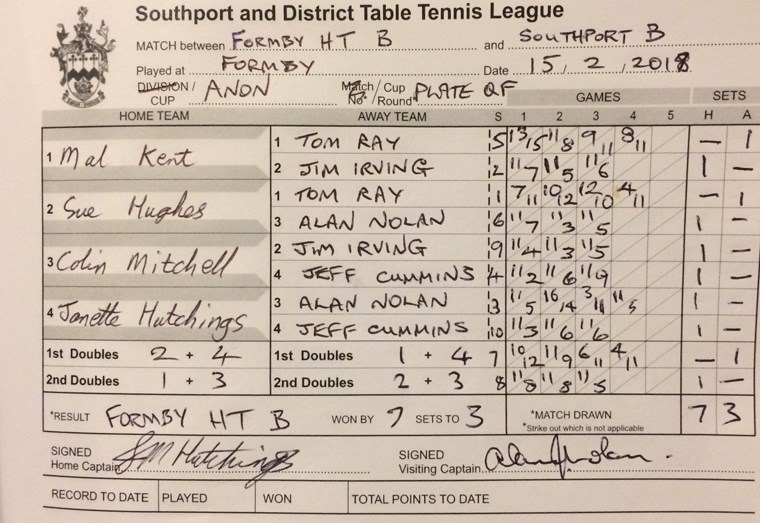 Southport and District Table Tennis League
MATCH between FORMBY HT B and SOUTHPORT B
Played at FORMBY Date 15/2/2018
DIVISION / CUP ANON Match No. / Cup Round PLATE QF GAMES SETS
HOME TEAM AWAY TEAM S 1 2 3 4 5 H A
1 Mal Kent 1 TOM RAY 5 13/15 11/8 9/11 8/11 — 1
2 JIM IRVING 2 11/7 11/5 11/6 1 —
2 Sue Hughes 1 TOM RAY 1 7/11 10/12 12/10 4/11 — 1
3 ALAN NOLAN 6 11/7 11/3 11/5 1 —
3 Colin Mitchell 2 JIM IRVING 9 11/4 11/3 11/5 1 —
4 JEFF CUMMINS 4 11/2 11/6 11/9 1 —
4 Janette Hutchings 3 ALAN NOLAN 3 11/5 16/14 3/11 11/5 1 —
4 JEFF CUMMINS 10 11/3 11/6 11/6 1 —
1st Doubles 2 + 4 1st Doubles 1 + 4 7 10/12 11/9 6/11 4/11 — 1
2nd Doubles 1 + 3 2nd Doubles 2 + 3 8 11/8 11/8 11/5 1 —
*RESULT FORMBY HT B WON BY 7 SETS TO 3 *MATCH DRAWN 7 3
*Strike out which is not applicable
SIGNED Home Captain SIGNED Visiting Captain
RECORD TO DATE PLAYED WON TOTAL POINTS TO DATE